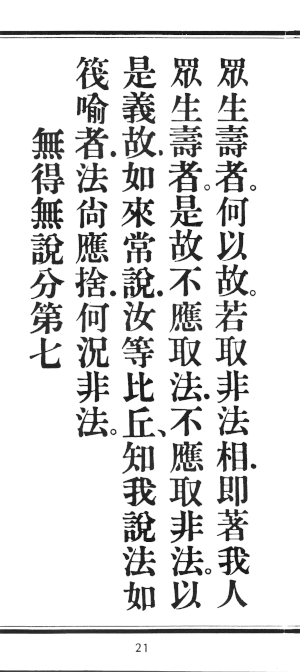 眾生壽者。何以故。若取非法相.即著我人
眾生壽者。是故不應取法.不應取非法。以
是義故.如來常說.汝等比丘、知我說法如
筏喻者.法尚應捨.何況非法。
無得無說分第七
21